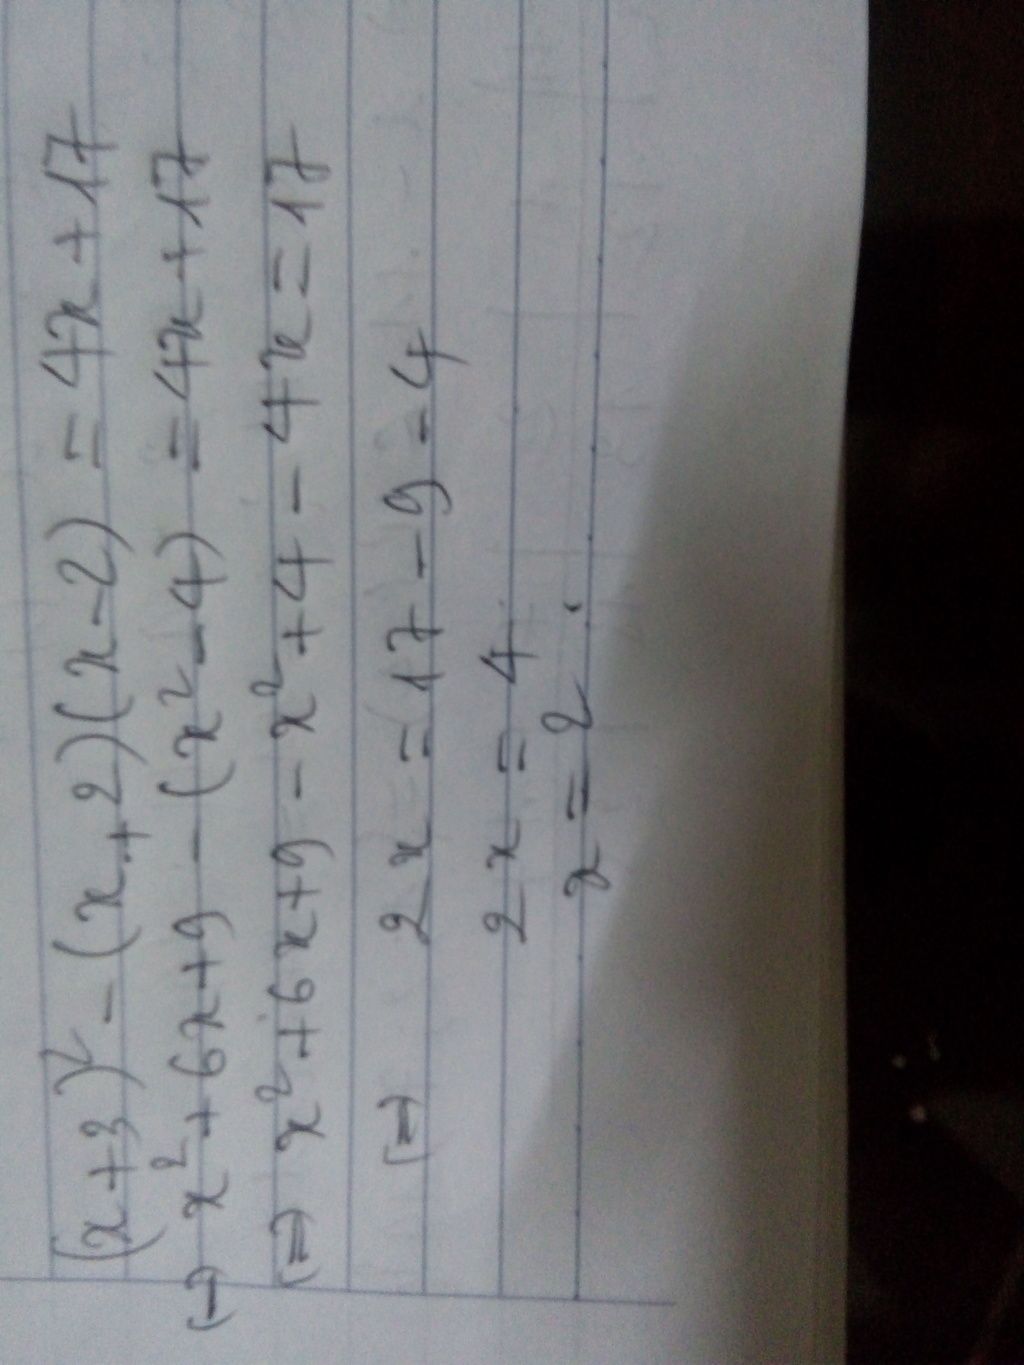 (x+3)² - (x+2)(x-2) = 4x+17
(=) x²+6x+9 - (x²-4) = 4x+17
(=) x²+6x+9 - x²+4 - 4x = 17
(=) 2x = 17-9-4
2x = 4
x = 2.